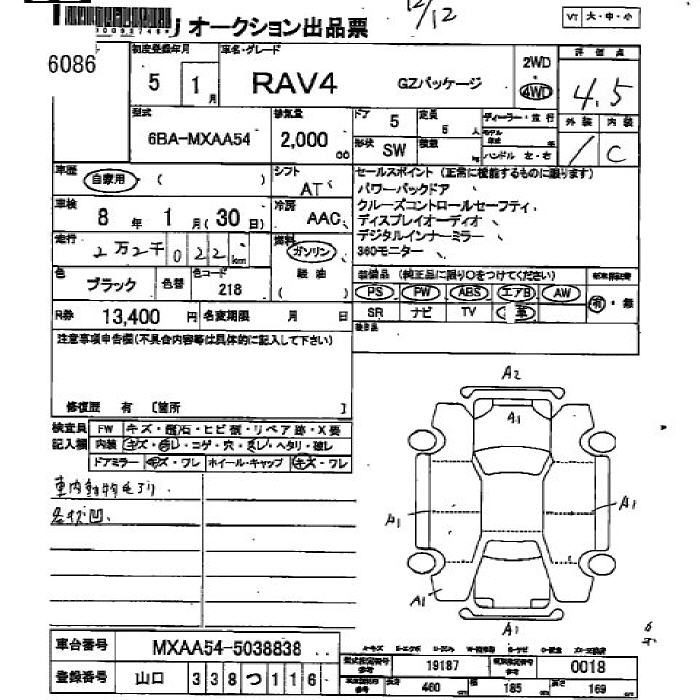 12/12
オークション出品票
VT 大・中・小
6086
初度登録年月
5 1月
車名・グレード
RAV4 GZパッケージ
2WD
4WD
評価点
4.5
外装 内装
C
型式
6BA-MXAA54
排気量
2,000
cc
ドア 5
定員 5人
形状 SW
積載 kg
ディーラー・並行
モデル年式 年
ハンドル 左・右
車歴
自家用 ( )
シフト
AT
車検
8年 1月 (30日)
冷房
AAC
走行
2万2千022km
燃料
ガソリン
軽油
( )
色
ブラック
色替
色コード
218
R券 13,400円
名変期限 月 日
セールスポイント (正常に機能するものに限ります)
パワーバックドア 、
クルーズコントロールセーフティ
ディスプレイオーディオ 、
デジタルインナーミラー 、
360モニター 、
装備品 (純正品に限り○をつけてください)
PS PW ABS エアB AW
SR ナビ TV 革
有・無
注意事項申告欄(不具合内容等は具体的に記入して下さい)
修復歴 有 [箇所 ]
検査員記入欄
FW キズ・飛石・ヒビ割・リペア跡・X要
内装 キズ・汚レ・コゲ・穴・スレ・ヘタリ・破レ
ドアミラー キズ・ワレ ホイール・キャップ キズ・ワレ
車内動物毛アリ.
A2
A1
A1
A1
A1
A1
車台番号 MXAA54-5038838
登録番号 山口 338つ116
型式指定番号 19187
類別区分番号 0018
長さ 460cm
幅 185cm
高さ 169cm